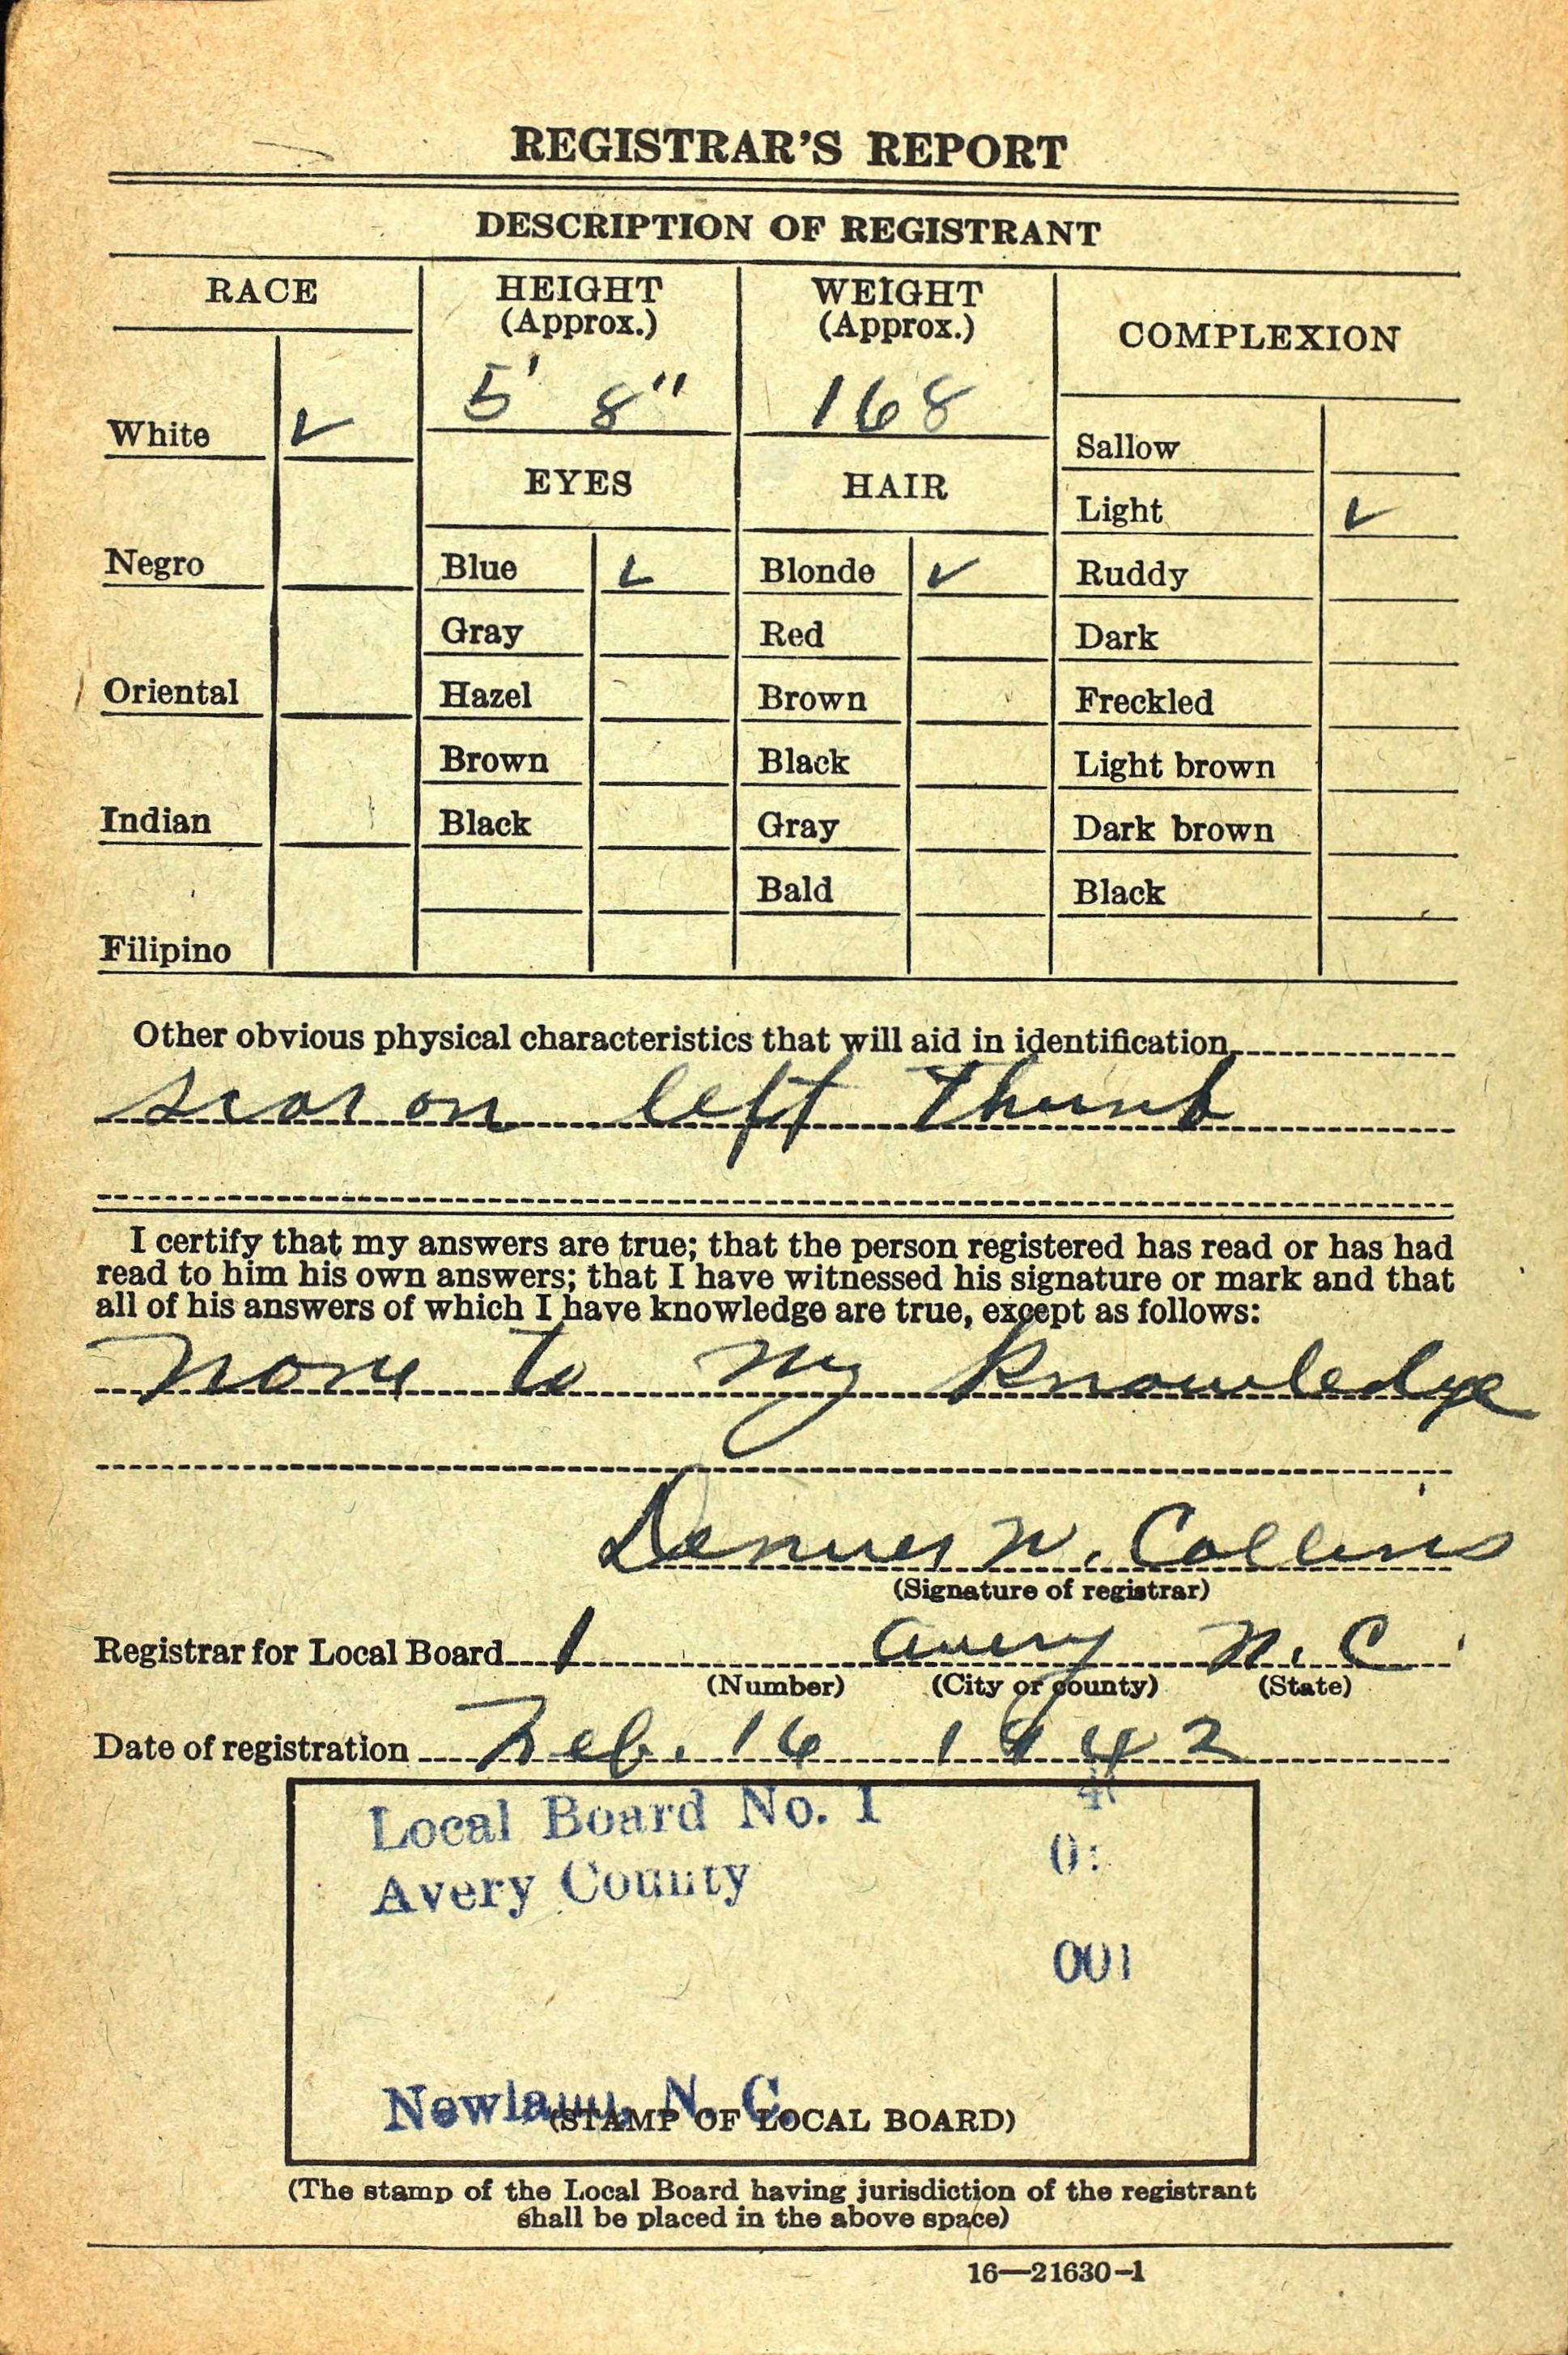 REGISTRAR'S REPORT
DESCRIPTION OF REGISTRANT
RACE
HEIGHT
(Approx.)
WEIGHT
(Approx.)
COMPLEXION
5' 8"
168
White ✓
Sallow
EYES
HAIR
Light ✓
Negro
Blue ✓
Blonde ✓
Ruddy
Gray
Red
Dark
Oriental
Hazel
Brown
Freckled
Brown
Black
Light brown
Indian
Black
Gray
Dark brown
Bald
Black
Filipino
Other obvious physical characteristics that will aid in identification
scar on left Thumb
I certify that my answers are true; that the person registered has read or has had
read to him his own answers; that I have witnessed his signature or mark and that
all of his answers of which I have knowledge are true, except as follows:
None to my knowledge
Denver W. Collins
(Signature of registrar)
Registrar for Local Board 1 Avery N. C
(Number) (City or county) (State)
Date of registration Feb. 16 1942
Local Board No. 1
Avery County
001
Newland, N. C.
(STAMP OF LOCAL BOARD)
(The stamp of the Local Board having jurisdiction of the registrant
shall be placed in the above space)
16—21630-1